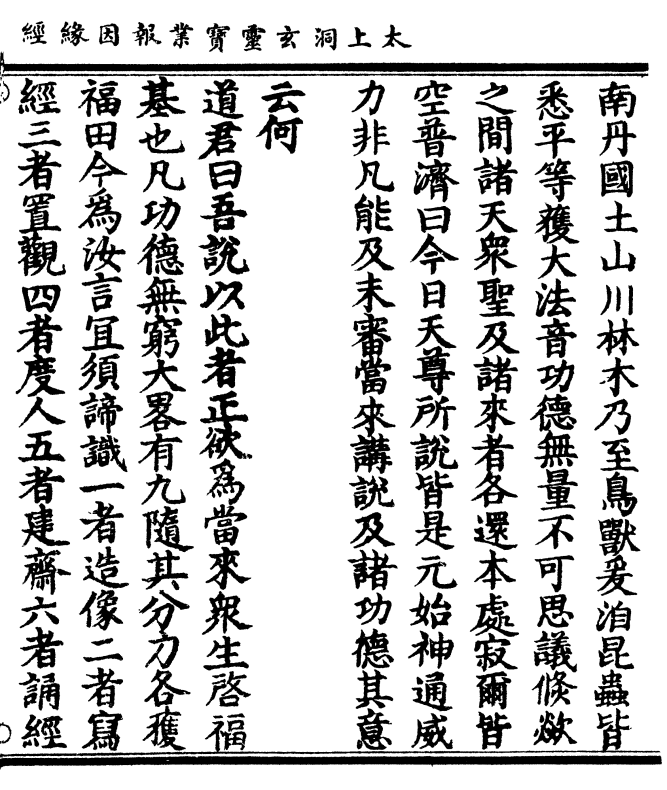 太上洞玄靈寶業報因緣經
南丹國土山川林木乃至鳥獸爰洎昆蟲皆
悉平等獲大法音功德無量不可思議倐歘
之間諸天衆聖及諸來者各還本處寂爾皆
空普濟曰今日天尊所說皆是元始神通威
力非凡能及未審當來講說及諸功德其意
云何
道君曰吾說以此者正欲爲當來衆生啓福
基也凡功德無窮大畧有九隨其分力各獲
福田今爲汝言冝須諦識一者造像二者寫
經三者置觀四者度人五者建齋六者誦經